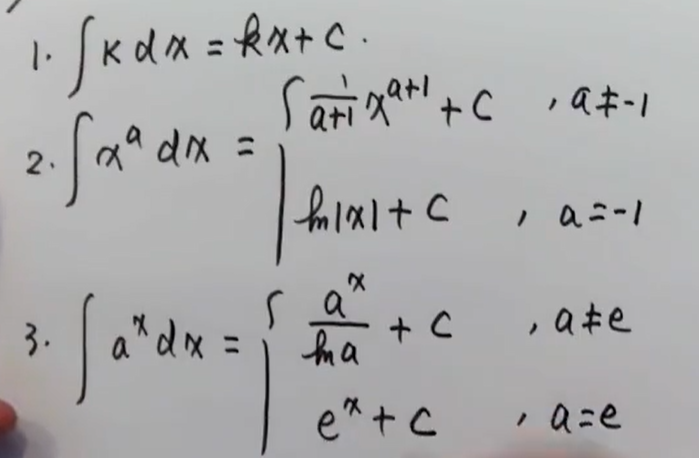 1. ∫ k dx = kx + C.
2. ∫ x^a dx = { 1/(a+1) x^(a+1) + C , a ≠ -1
ln|x| + C , a = -1
3. ∫ a^x dx = { a^x/ln a + C , a ≠ e
e^x + C , a = e